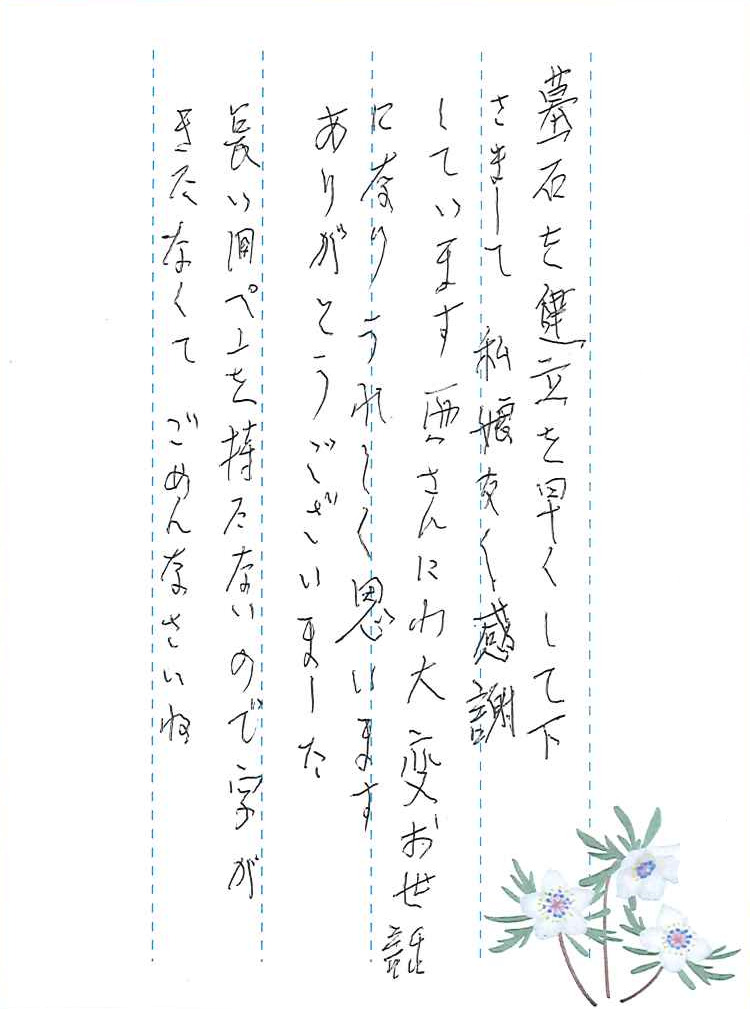 墓石を建立を早くして下
さまして 私娘友く感謝
しています 西さんにわ大変お世話
になりうれしく思います
ありがとうございました
長い間ペンを持たないので字が
きたなくて ごめんなさいね